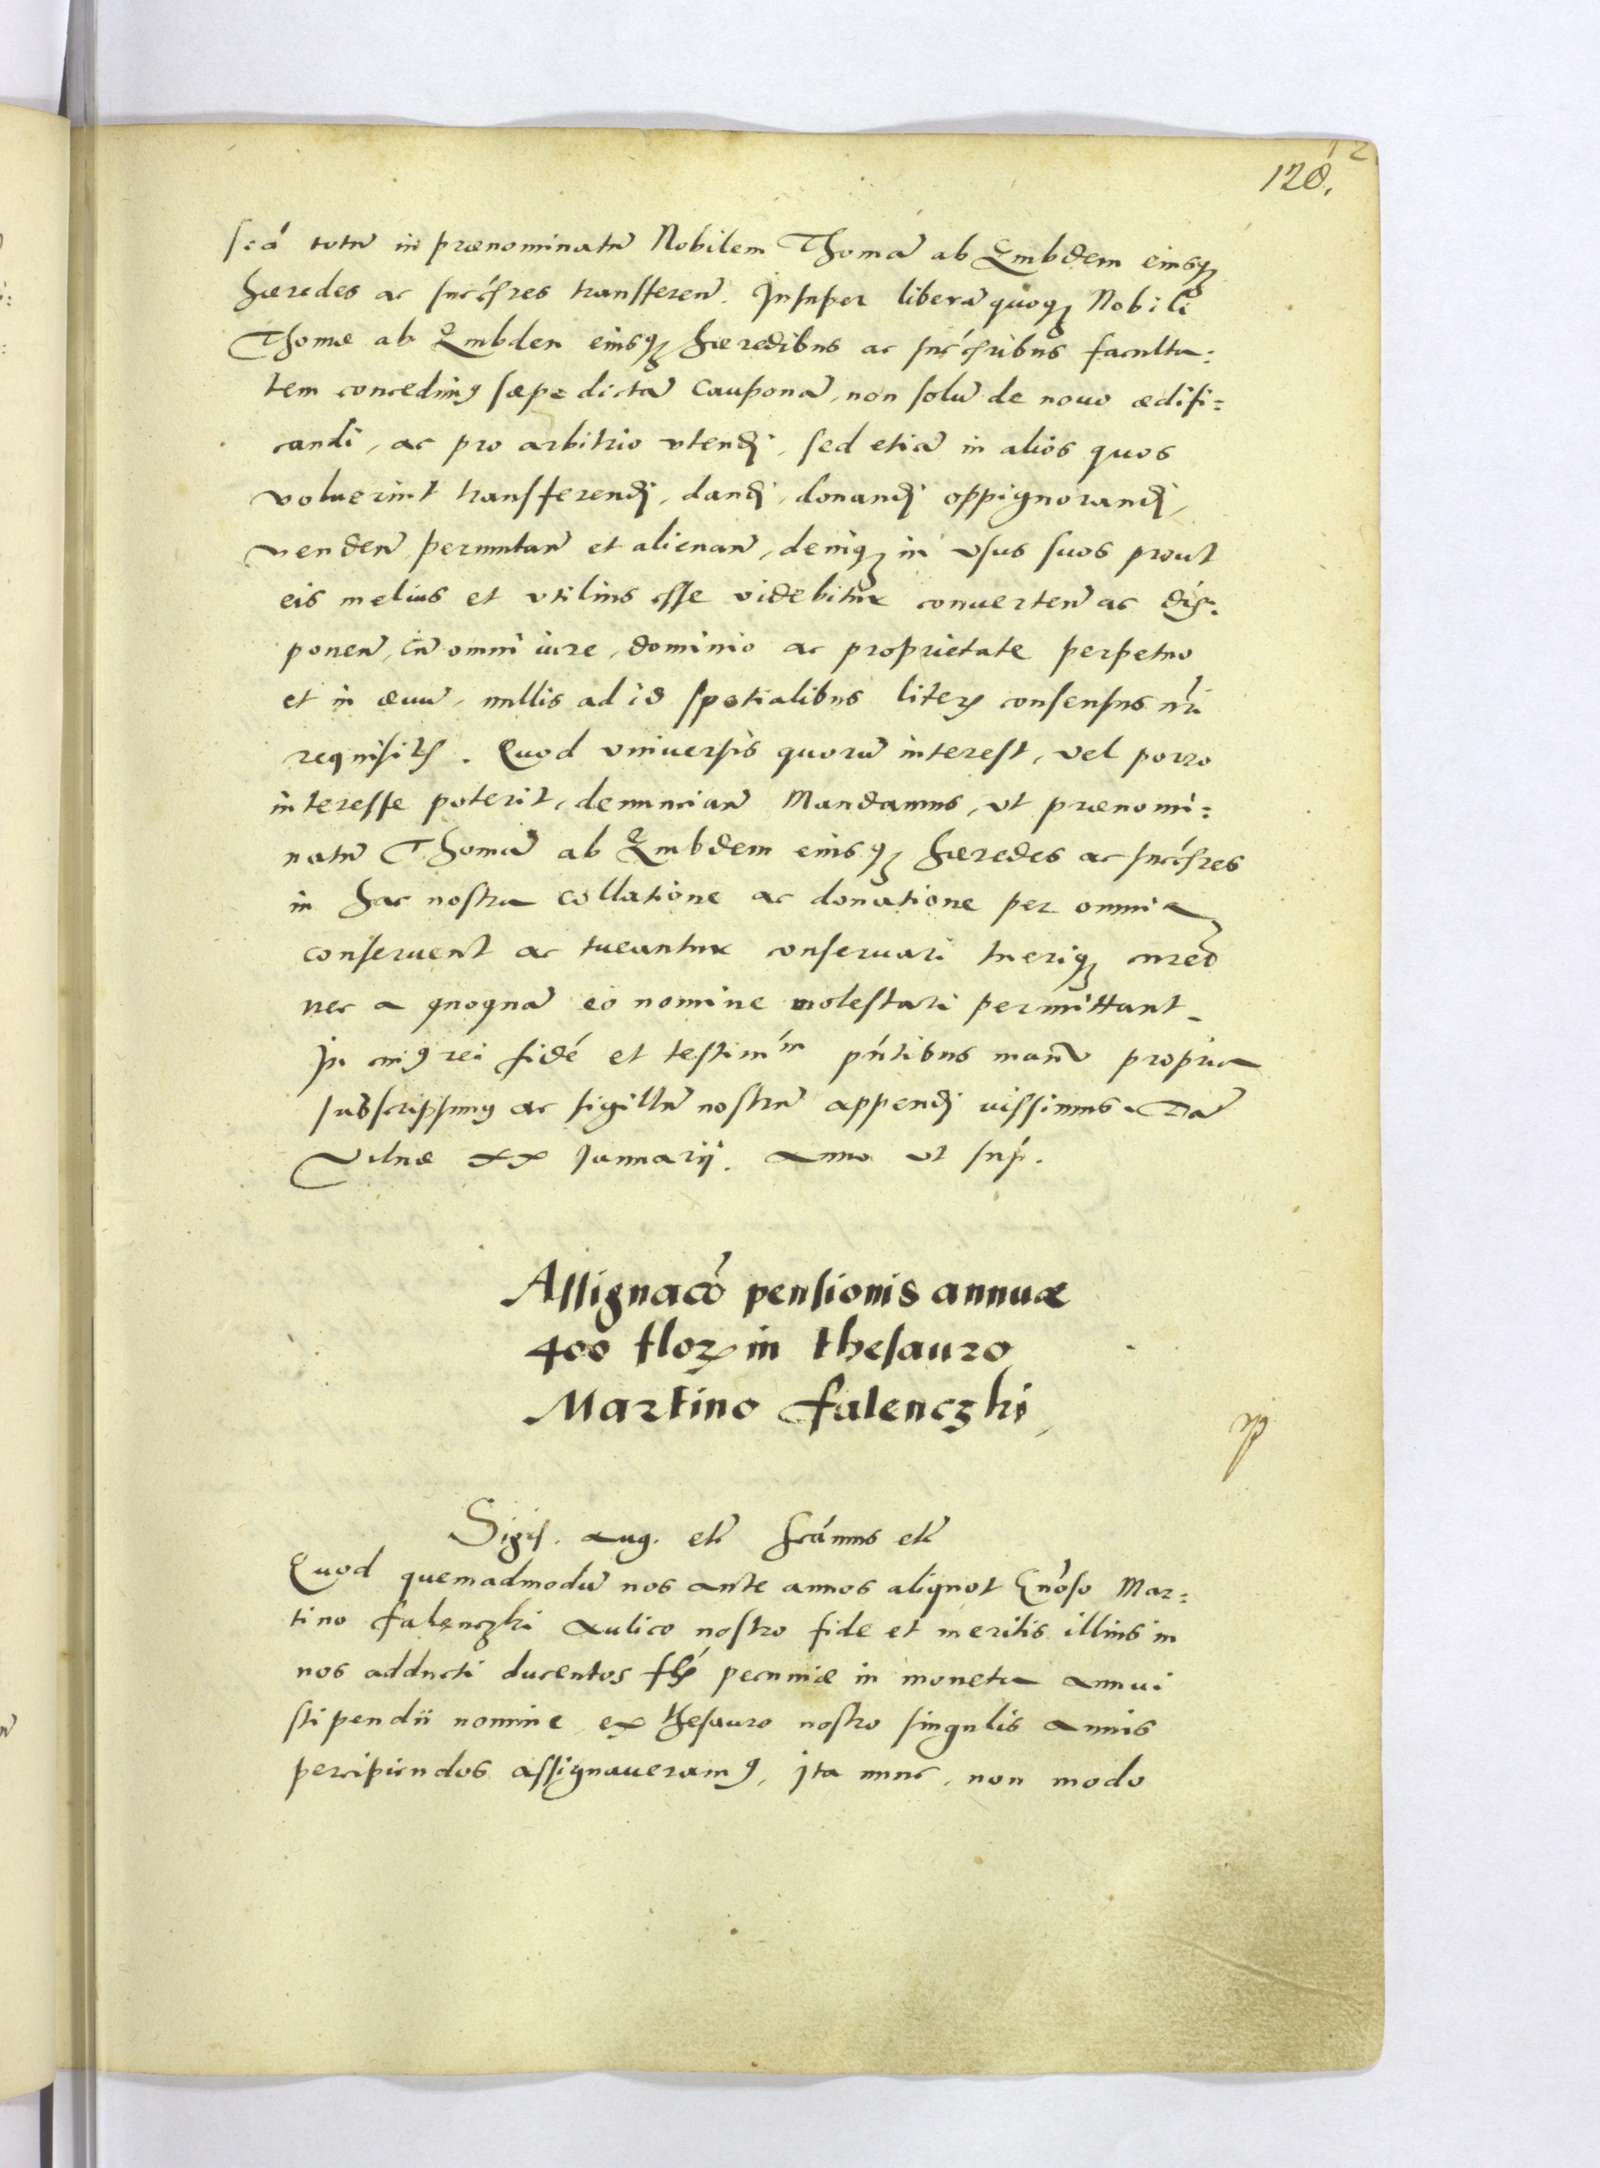 128.
scā totū in prænominatū Nobilem Thomā ab Embdem eiusq;
hæredes ac succ̄sres transferen̄. Insuper liberā quoq; Nobili
Thomæ ab Embden eiusq; hæredibus ac succ̄sribus faculta:
tem concedim9 sæpe dictā cauponā, non solū de nouo ædifi:
candi, ac pro arbitrio vtendj, sed etiā in alios quos
voluerint transferendj, dandj, donandj oppignorandj,
venden̄ permutan̄ et alienan̄, deniq; in vsus suos prout
eis melius et vtilius esse videbitur conuerten̄ ac dis:
ponen̄, cū omni iure, dominio ac proprietate perpetuo
et in æuū, nullis ad id spetialibus literis consensus nr̄i
requisitis. Quod vniuersis quorū interest, vel porro
interesse poterit, denuncian̄ Mandamus, vt prænomi:
natū Thomā ab Embdem eiusq; hæredes ac succ̄sres
in hac nostra collatione ac donatione per omnia
conseruent ac tueantur conseruari tueriq; cured
nec a quoquā eo nomine molestari permittant.
In cui9 rei fidē et testim̄m pn̄tibus manū propria
subscripsim9 ac sigillū nostrū appendj iussimus. Dā
Vilnæ XX Januarij. Anno vt sup̄.
Assignacō pensionis annuæ
400 flor in thesauro
Martino Falenczki
Sigis. Aug. etc̄ scām̄us etc̄
Quod quemadmodū nos ante annos aliquot Gn̄oso Mar:
tino Falenczki Aulico nostro fide et meritis illius in
nos adducti ducentos flr̄ pecuniæ in moneta annui
stipendii nomine ex thesauro nostro singulis annis
percipiendos assignaueram9, Ita nunc, non modo